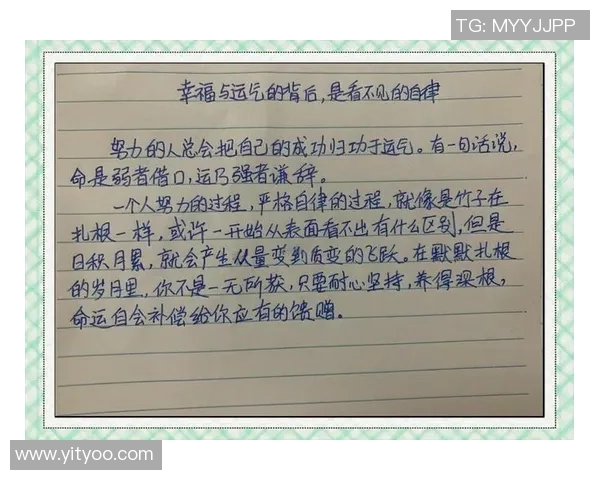 TG: MYYJJPP
幸福与运气的背后,是看不见的自律
努力的人总会把自己的成功归功于运气。有一句话说,
命是弱者借口,运乃强者谦辞。
一个人努力的过程,严格自律的过程,就像是竹子在
扎根一样,或许一开始从表面看不出有什么区别,但是
日积月累,就会产生从量变到质变的飞跃。在默默扎根
的岁月里,你不是一无所获,只要耐心坚持,养得深根,
命运自会补偿给你应有的馈赠。
www.yityoo.com